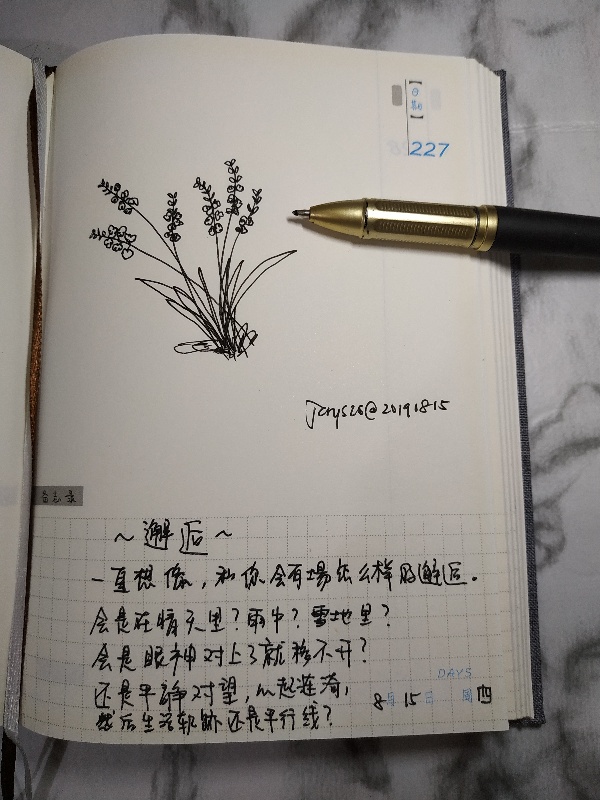 【日期】
227
Jcrys26@2019 8·15
备忘录
~邂逅~
一直想像，和你会有場怎么样的邂逅.
会是在晴天里？雨中？雪地里？
会是眼神对上了就移不开？
还是平静对望，从起涟漪，
然后生活轨跡还是平行线？
DAYS
8月15日 周四